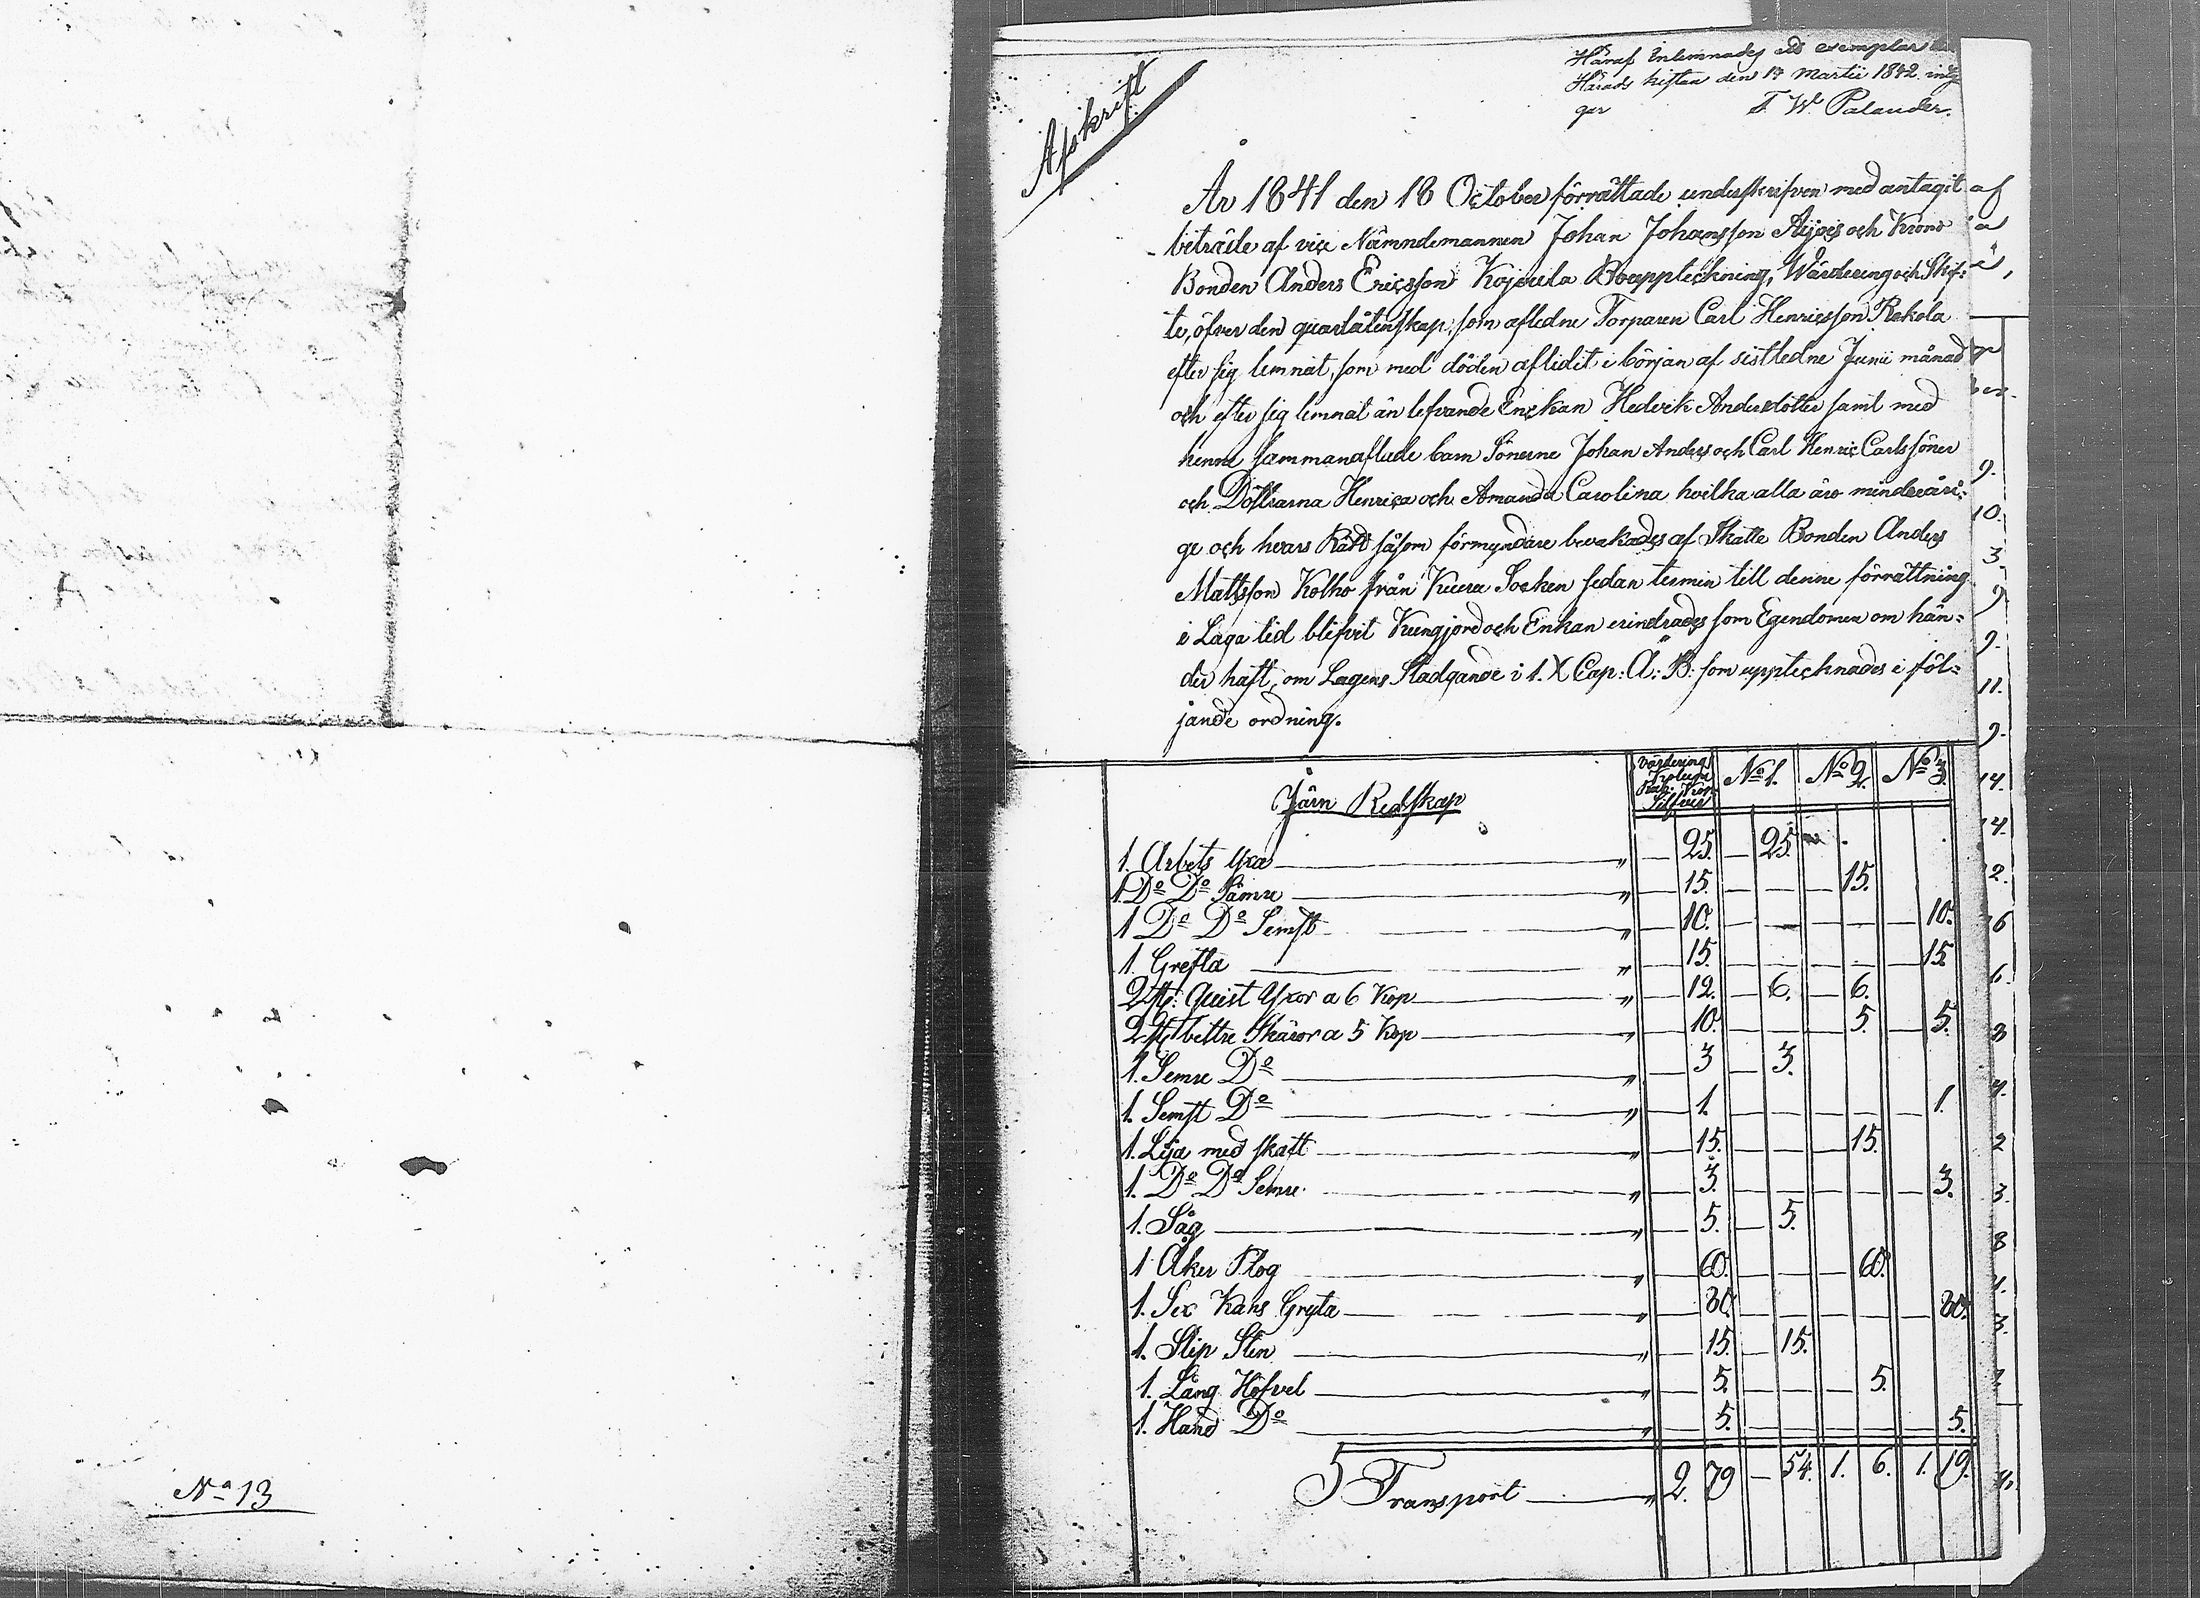 No 13
Afskrift
Häraf Inlemnades ett exemplar
Härads kistan den 17 Martii 1842. intÿ
gar T W. Palander.
År 1841 den 18 October förrättade underskrifven med antagit
biträde af vice Nämndemannen Johan Johansson Äijös och Krono
Bonden Anders Ericsson Kojoula Bouppteckning, Wärdering och Skif=
te, öfver den quarlåtenskap, som afledne Torparen Carl Henricsson Rekola
efter sig lemnat, som med döden aflidit i början af sistledne Junii månad
och efter sig lemnat än lefvande Enckan Hedvik Andersdotter samt med
henne sammanaflade barn Sönerne Johan Anders och Carl Henric Carlssöner
och Döttrarna Henrica och Amanda Carolina hvilka alla äro minderåri=
ge och hvars Rätt såsom förmyndare bevakades af Skatte Bonden Anders
Mattsson Kolho från Kuru Socken sedan termin till denne förrättning
i Laga tid blifvit Kungjord och Enkan erindrades som Egendomen om hän=
der haft, om Lagens Stadgande i 1. X Cap: Ä: B: som upptecknades i föl=
jande ordning.
Järn Redskap Värdering Rub: Kop: Silfver No 1. No 2. No 3.
1. Arbets Yxa — " — 25. — 25.
1 Do Do Sämre — " — 15. — — — 15.
1 Do Do Semst — " — 10. — — — — — 10.
1. Grefta — " — 15. — — — — — 15.
2 st: Quist Yxor a 6 Kop — " — 12. — 6. — 6.
2 st bettre Skäror a 5 Kop — " — 10. — — — 5. — 5.
1. Semre Do — " — 3 — 3.
1. Semst Do — " — 1. — — — — — 1.
1. Lija med skaft — " — 15. — — — 15.
1. Do Do Semre — " — 3. — — — — — 3.
1. Såg — " — 5. — 5.
1 Åker Plog — " — 60. — — — 60.
1. Sex Kans Gryta — " — 80. — — — — — 80.
1. Slip Sten — " — 15. — 15.
1. Lång Höfvel — " — 5. — — — 5.
1. Hand Do — " — 5. — — — — — 5.
Transport — " 2. 79 — 54. 1. 6. 1. 19.